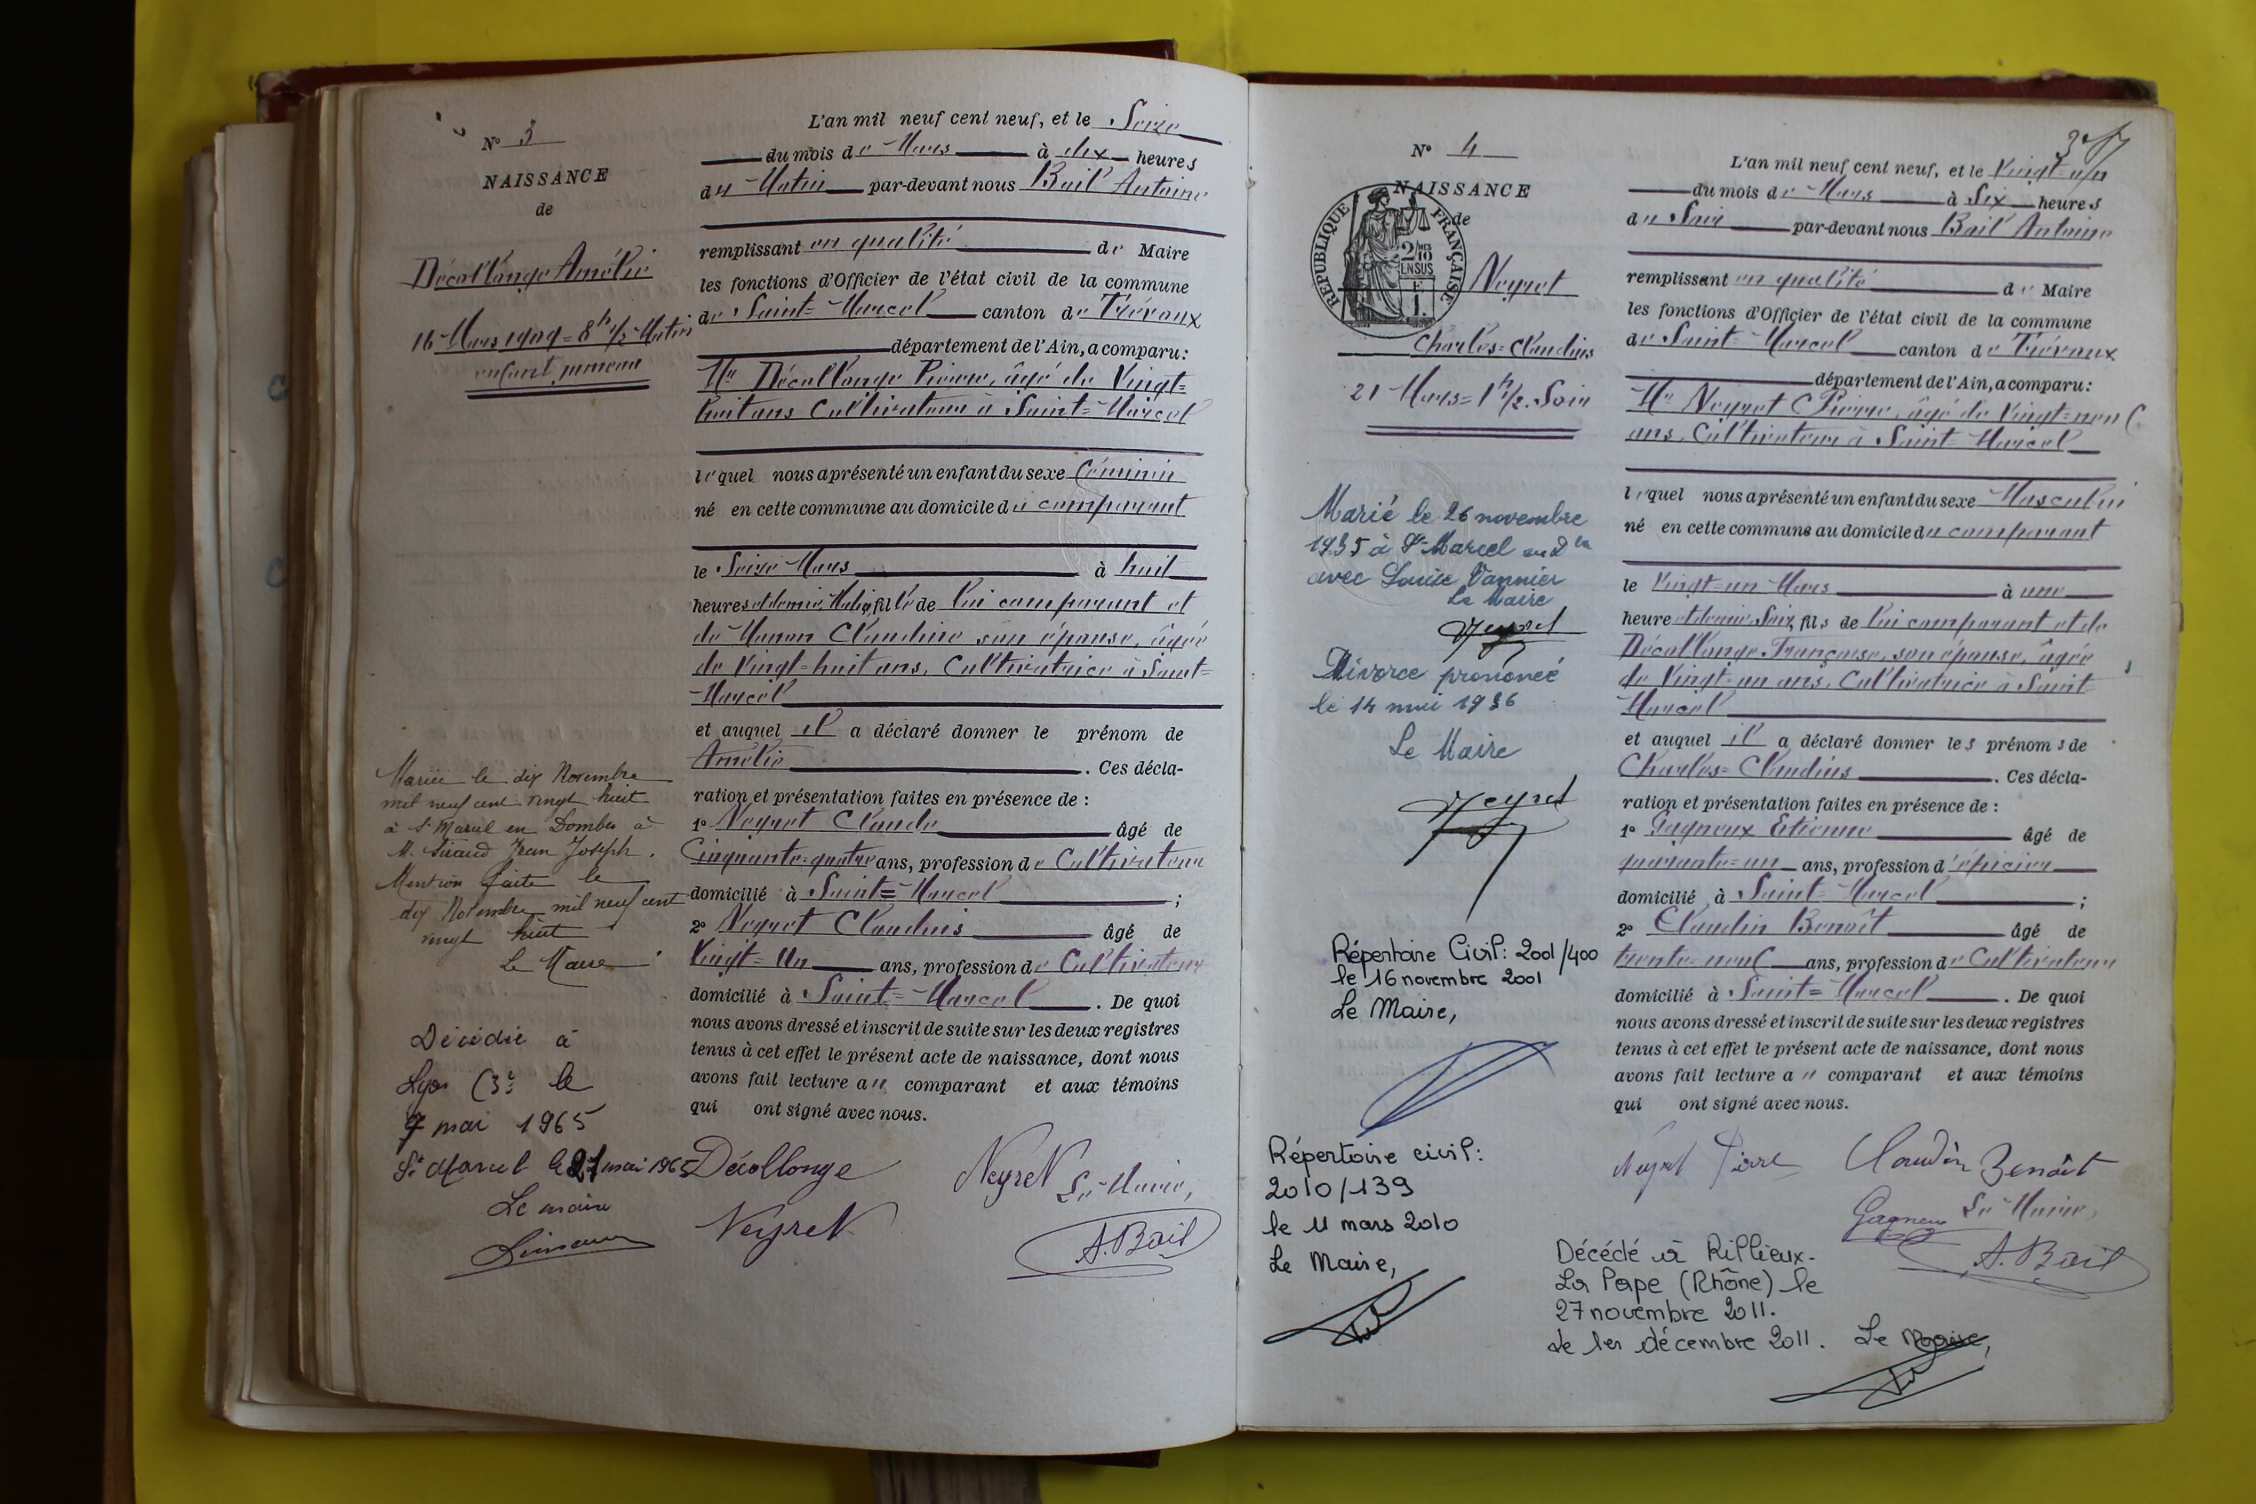 N° 3
NAISSANCE
de
Décollonge Amélie
16 Mars 1909 = 8 h 1/2 Matin
enfant jumeau
L'an mil neuf cent neuf, et le Seize
du mois de Mars à dix heures
du Matin par-devant nous Bail Antoine
remplissant en qualité de Maire
les fonctions d'Officier de l'état civil de la commune
de Saint=Marcel canton de Trévoux
département de l'Ain, a comparu :
Mr Décollonge Pierre, âgé de Vingt=
huit ans Cultivateur à Saint=Marcel
lequel nous a présenté un enfant du sexe féminin
né en cette commune au domicile du comparant
le Seize Mars à huit
heures et demie Matin, fille de lui comparant et
de Manon Claudine son épouse, âgée
de Vingt=huit ans, Cultivatrice à Saint=
Marcel
et auquel il a déclaré donner le prénom de
Amélie . Ces décla-
ration et présentation faites en présence de :
1° Neyret Claude âgé de
Cinquante=quatre ans, profession de Cultivateur
domicilié à Saint=Marcel ;
2° Neyret Claudius âgé de
Vingt=Un ans, profession de Cultivateur
domicilié à Saint=Marcel . De quoi
nous avons dressé et inscrit de suite sur les deux registres
tenus à cet effet le présent acte de naissance, dont nous
avons fait lecture au comparant et aux témoins
qui ont signé avec nous.
Décollonge Neyret Le Maire,
Neyret A. Bail
Mariée le dix Novembre
mil neuf cent vingt huit
à St Marcel en Dombes à
M. Jean Joseph.
Mention faite le
dix Novembre mil neuf cent
vingt huit
Le Maire
Décédée à
Lyon (3e) le
7 mai 1965
St Marcel le 21 mai 1965
Le maire
N° 4
NAISSANCE
de
RÉPUBLIQUE FRANÇAISE
2/10 EN SUS
1.
Neyret
Charles=Claudius
21 Mars = 1 h 1/2 Soir
L'an mil neuf cent neuf, et le Vingt=un
du mois de Mars à Six heures
du Soir par-devant nous Bail Antoine
remplissant en qualité de Maire
les fonctions d'Officier de l'état civil de la commune
de Saint=Marcel canton de Trévoux
département de l'Ain, a comparu :
Mr Neyret Pierre, âgé de Vingt=neuf
ans, Cultivateur à Saint=Marcel
lequel nous a présenté un enfant du sexe Masculin
né en cette commune au domicile du comparant
le Vingt=un Mars à une
heure et demie Soir, fils de lui comparant et de
Décollonge Françoise, son épouse, âgée
de Vingt=un ans, Cultivatrice à Saint=
Marcel
et auquel il a déclaré donner les prénoms de
Charles=Claudius . Ces décla-
ration et présentation faites en présence de :
1° Gagneux Etienne âgé de
quarante=un ans, profession d'épicier
domicilié à Saint=Marcel ;
2° Claudin Benoît âgé de
trente=neuf ans, profession de Cultivateur
domicilié à Saint=Marcel . De quoi
nous avons dressé et inscrit de suite sur les deux registres
tenus à cet effet le présent acte de naissance, dont nous
avons fait lecture au comparant et aux témoins
qui ont signé avec nous.
Neyret Pierre Claudin Benoît
Gagneux Le Maire,
A. Bail
Marié le 26 novembre
1935 à St Marcel
avec Louise Vannier
Le Maire
Neyret
Divorce prononcé
le 14 mai 1936
Le Maire
Neyret
Répertoire Civil : 2001/400
le 16 novembre 2001
Le Maire,
Répertoire civil :
2010/139
le 11 mars 2010
Le Maire,
Décédé à Rillieux-
La Pape (Rhône) le
27 novembre 2011.
Le 1er décembre 2011. Le Maire,